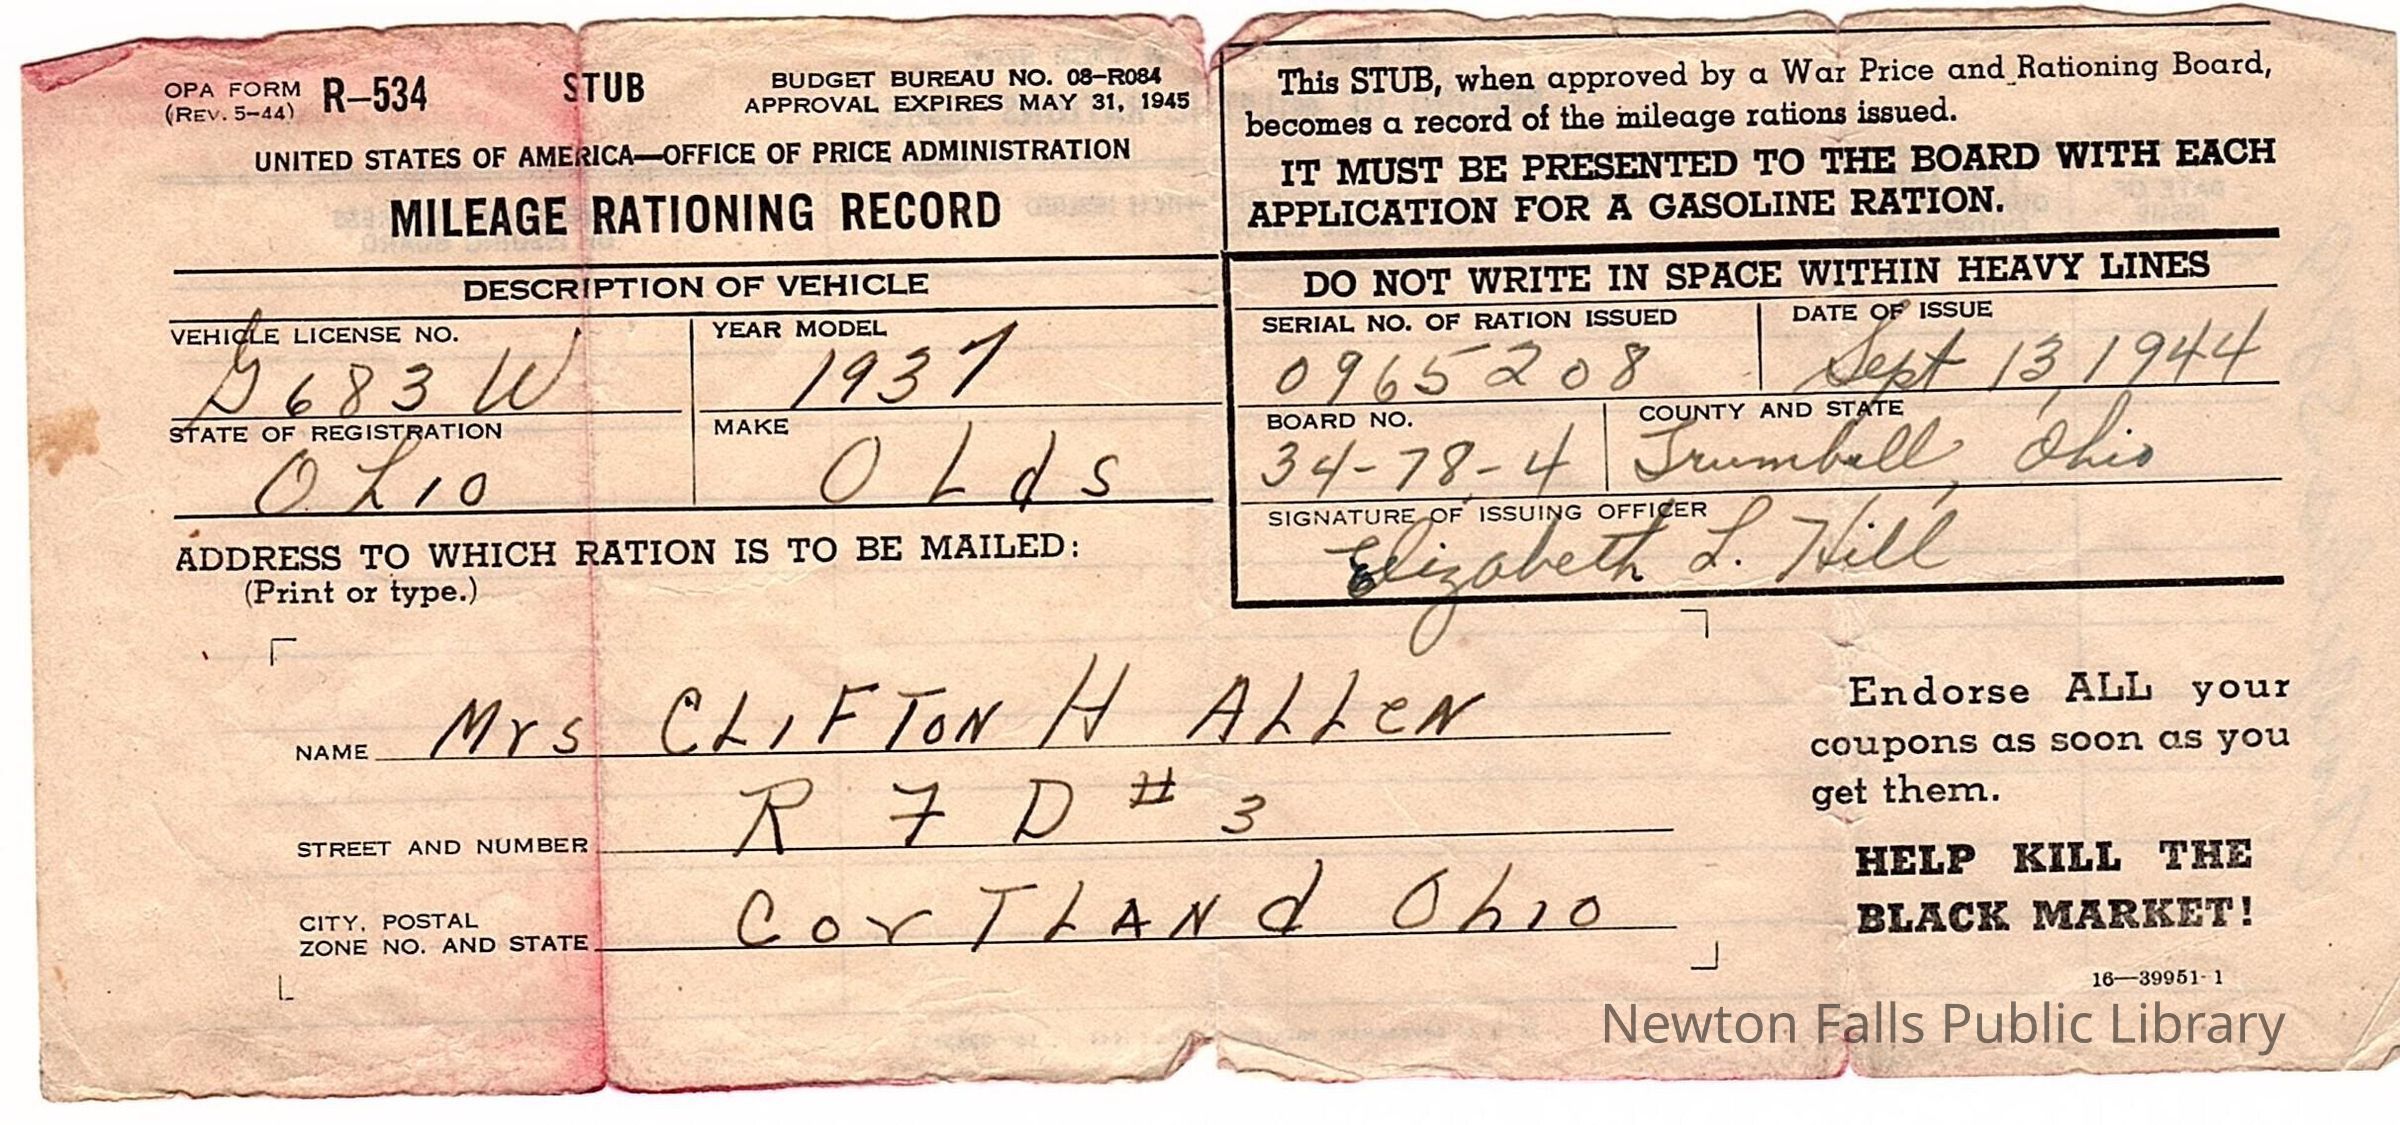 OPA FORM R–534 STUB BUDGET BUREAU NO. 08–R084
(REV. 5–44) APPROVAL EXPIRES MAY 31, 1945
UNITED STATES OF AMERICA—OFFICE OF PRICE ADMINISTRATION
MILEAGE RATIONING RECORD
This STUB, when approved by a War Price and Rationing Board,
becomes a record of the mileage rations issued.
IT MUST BE PRESENTED TO THE BOARD WITH EACH
APPLICATION FOR A GASOLINE RATION.
DESCRIPTION OF VEHICLE
VEHICLE LICENSE NO. YEAR MODEL
G 683 W 1937
STATE OF REGISTRATION MAKE
Ohio Olds
DO NOT WRITE IN SPACE WITHIN HEAVY LINES
SERIAL NO. OF RATION ISSUED DATE OF ISSUE
0965208 Sept 13, 1944
BOARD NO. COUNTY AND STATE
34-78-4 Trumbull, Ohio
SIGNATURE OF ISSUING OFFICER
Elizabeth L. Hill
ADDRESS TO WHICH RATION IS TO BE MAILED:
(Print or type.)
NAME Mrs CLIFTON H ALLEN
STREET AND NUMBER R F D # 3
CITY, POSTAL
ZONE NO. AND STATE CorTLANd Ohio
Endorse ALL your
coupons as soon as you
get them.
HELP KILL THE
BLACK MARKET!
16—39951-1
Newton Falls Public Library